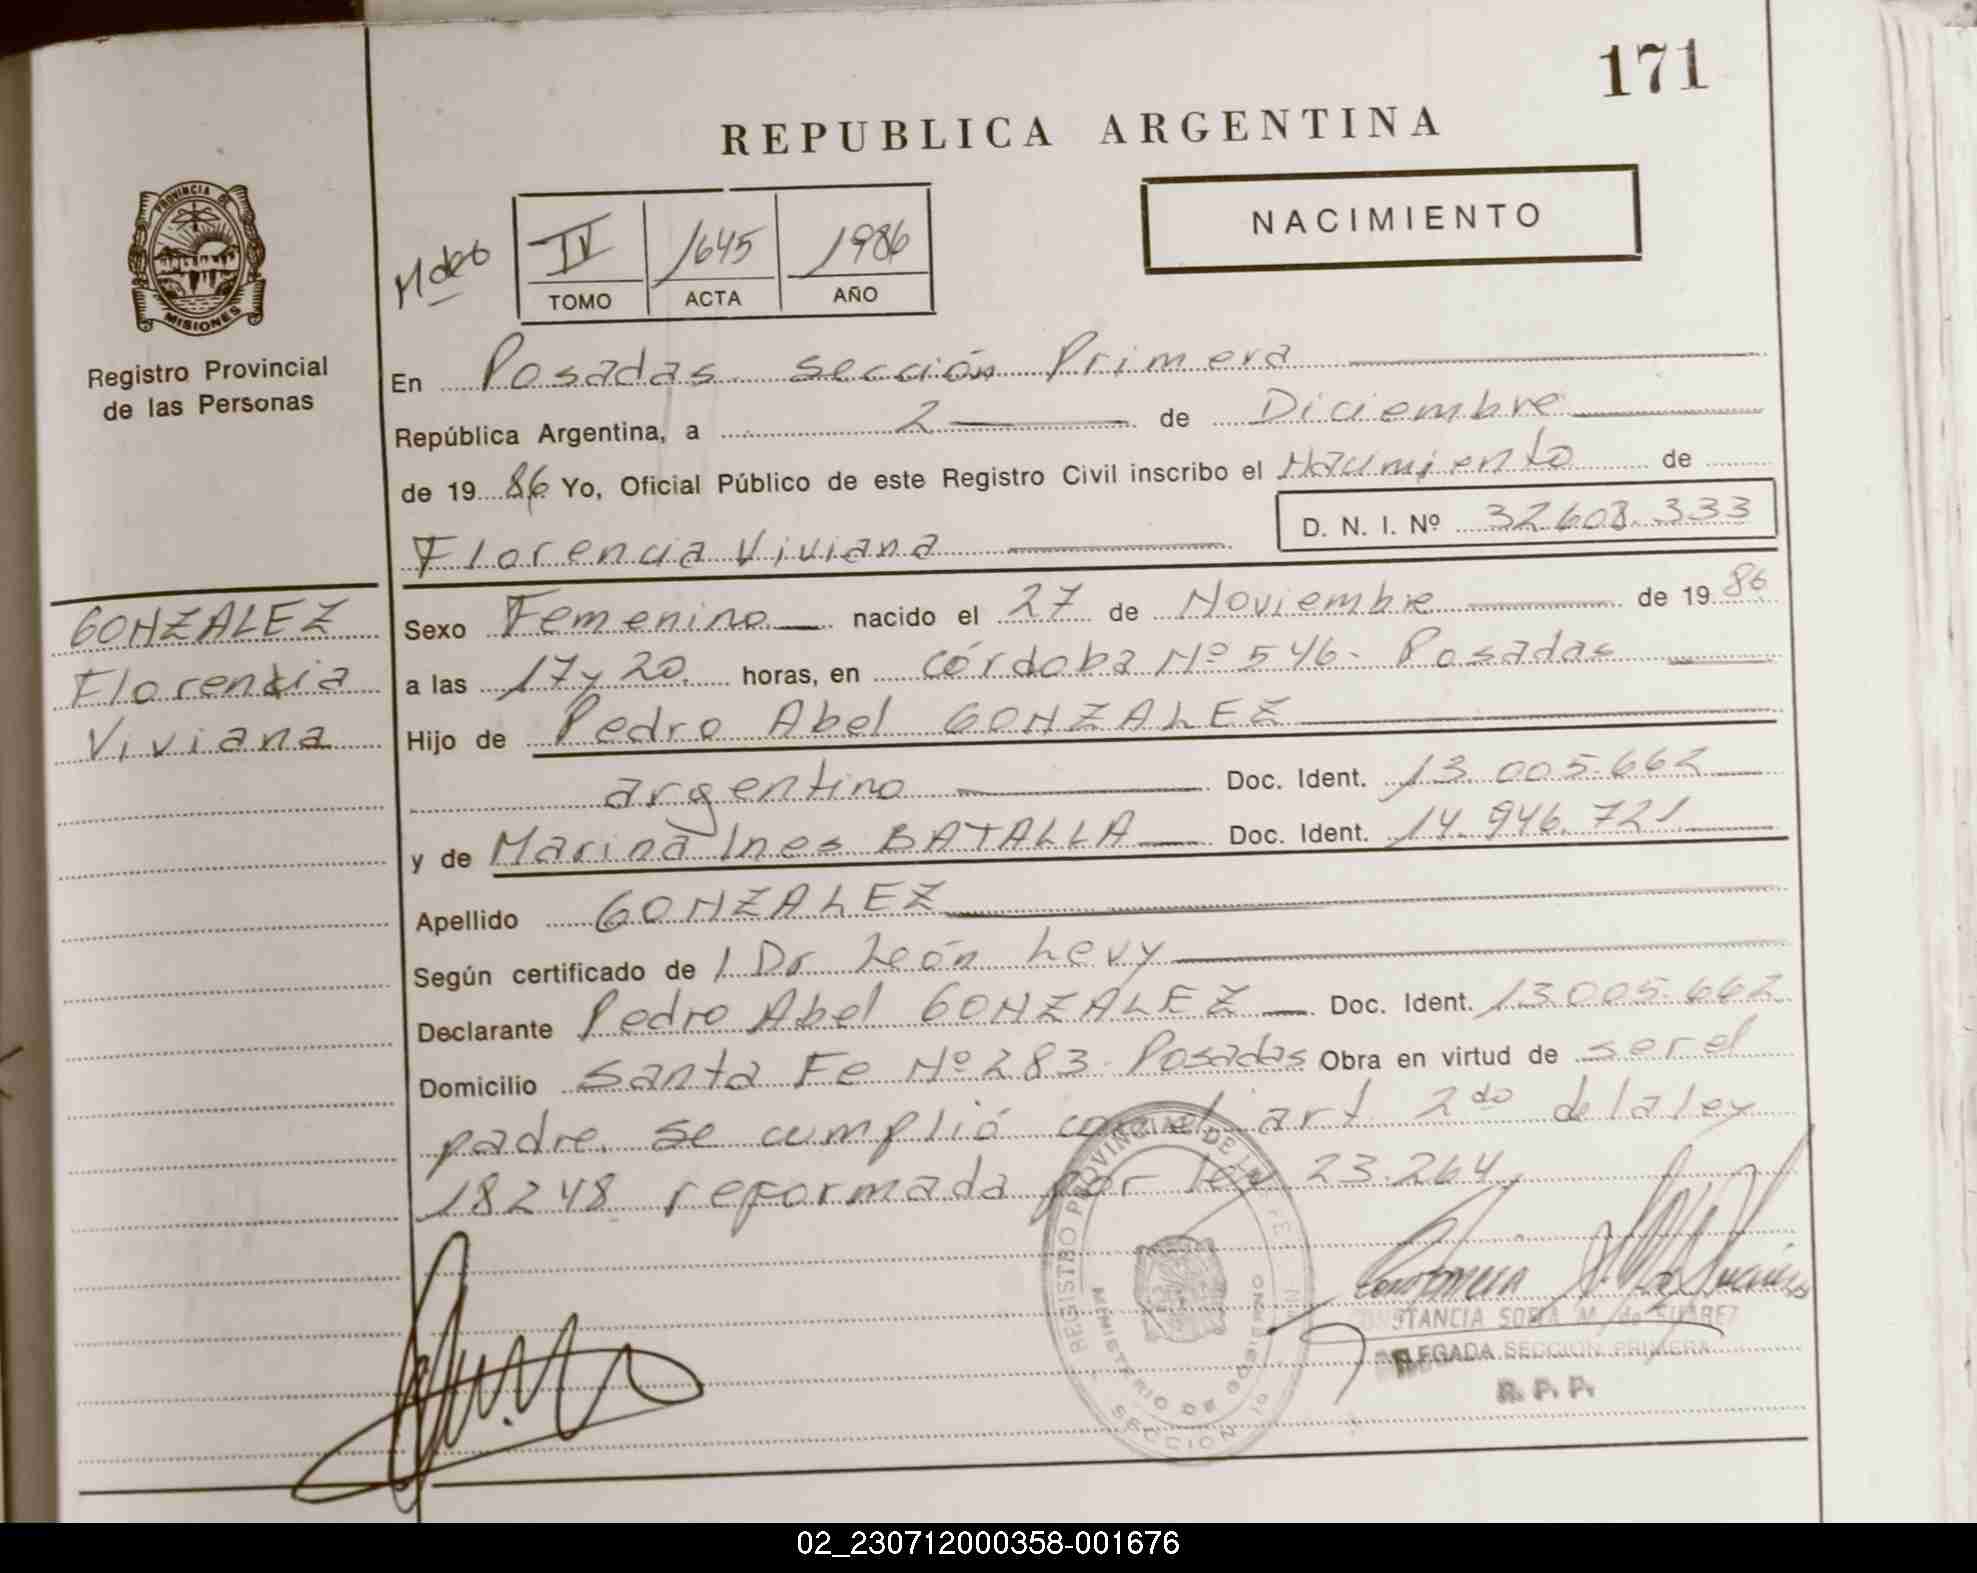 171
REPUBLICA ARGENTINA
NACIMIENTO
PROVINCIA DE
MISIONES
Registro Provincial
de las Personas
IV 1645 1986
TOMO ACTA AÑO
En Posadas sección Primera
República Argentina, a 2 de Diciembre
de 1986 Yo, Oficial Público de este Registro Civil inscribo el Nacimiento de
D. N. I. Nº 32.608.333
Florencia Viviana
GONZALEZ
Florencia
Viviana
Sexo Femenino nacido el 27 de Noviembre de 1986
a las 17 y 20 horas, en Córdoba Nº 546- Posadas
Hijo de Pedro Abel GONZALEZ
argentino Doc. Ident. 13.005.662
y de Marina Ines BATALLA Doc. Ident. 14.946.721
Apellido GONZALEZ
Según certificado de / Dr León Levy
Declarante Pedro Abel GONZALEZ Doc. Ident. 13.005.662
Domicilio Santa Fe Nº 283 Posadas Obra en virtud de ser el
padre. se cumplió con el art 2do de la ley
18248 reformada por ley 23.264.
REGISTRO PROVINCIAL DE
MINISTERIO DE GOBIERNO
SECCION 1º
CONSTANCIA SOFIA M. de SUAREZ
DELEGADA SECCION PRIMERA
R. P. P.
02_230712000358-001676